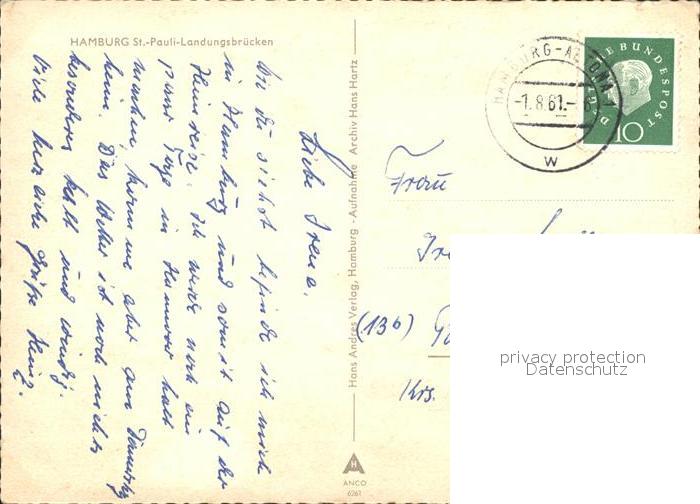 HAMBURG St.-Pauli-Landungsbrücken
Liebe Irene.
Wie Du siehst befinde ich mich
in Hamburg und somit auf der
Heimreise. Ich werde noch ein
paar Tage in Hannover halt
machen komme aber am Dienstag
heim. Das Wetter ist noch nicht
besonders kalt und windig.
Viele herzliche Grüße Heinz.
Hans Andres Verlag, Hamburg - Aufnahme Archiv Hans Hartz
ANCO
6261
HAMBURG-ALTONA 1
-1.8.61.-
w
DEUTSCHE BUNDESPOST
10
Frau
(13b)
Krs.
privacy protection
Datenschutz